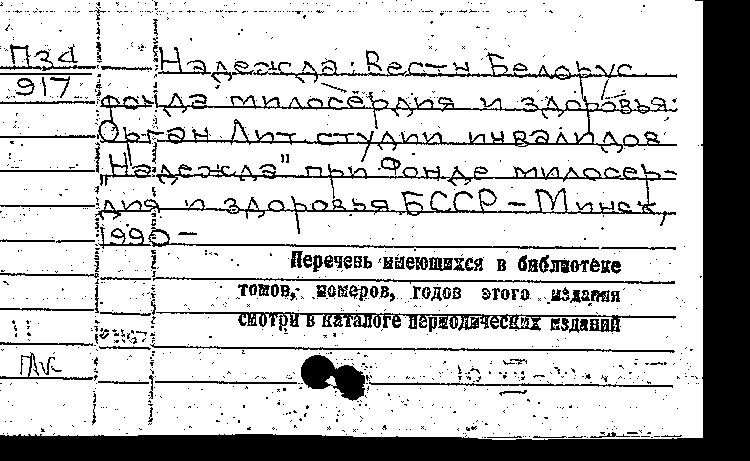 П34
917
Надежда: Весты Белорус.
фонда милосердия и здоровья:
Орган Лит. студии инвалидов
"Надежда" при Фонде милосер-
дия и здоровья БССР – Минск,
1990 –
Перечень имеющихся в библиотеке
томов, номеров, годов этого издания
смотри в каталоге периодических изданий